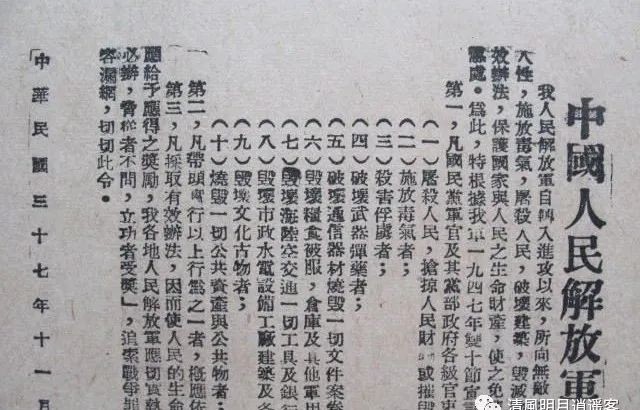 中國人民解放軍
我人民解放軍自轉入進攻以來，所向無敵
人性，施放毒氣，屠殺人民，破壞建築，毀滅
效辦法，保護國家與人民之生命財產，使之免
懲處。爲此，特根據我軍一九四七年雙十節宣言
第一，凡國民黨軍官及其黨部政府各級官吏
（一）屠殺人民，搶掠人民財 或摧毀
（二）施放毒氣者；
（三）殺害俘虜者；
（四）破壞武器彈藥者；
（五）破壞通信器材燒毀一切文件案
（六）毀壞糧食被服，倉庫及其他軍用
（七）毀壞海陸空交通一切工具及銀行
（八）毀壞市政水電設備工廠建築及各
（九）毀壞文化古物者；
（十）燒毀一切公共資產與公共物者；
第二，凡帶頭實行以上行爲之一者，概應依
第三，凡採取有效辦法，因而使人民的生命
應給予應得之獎勵，我各地人民解放軍應切實執
必辦，脅從者不問，立功者受獎」，追索戰爭罪
容漏網，切切此令。
中華民國三十七年十一月
清風明月逍遙客